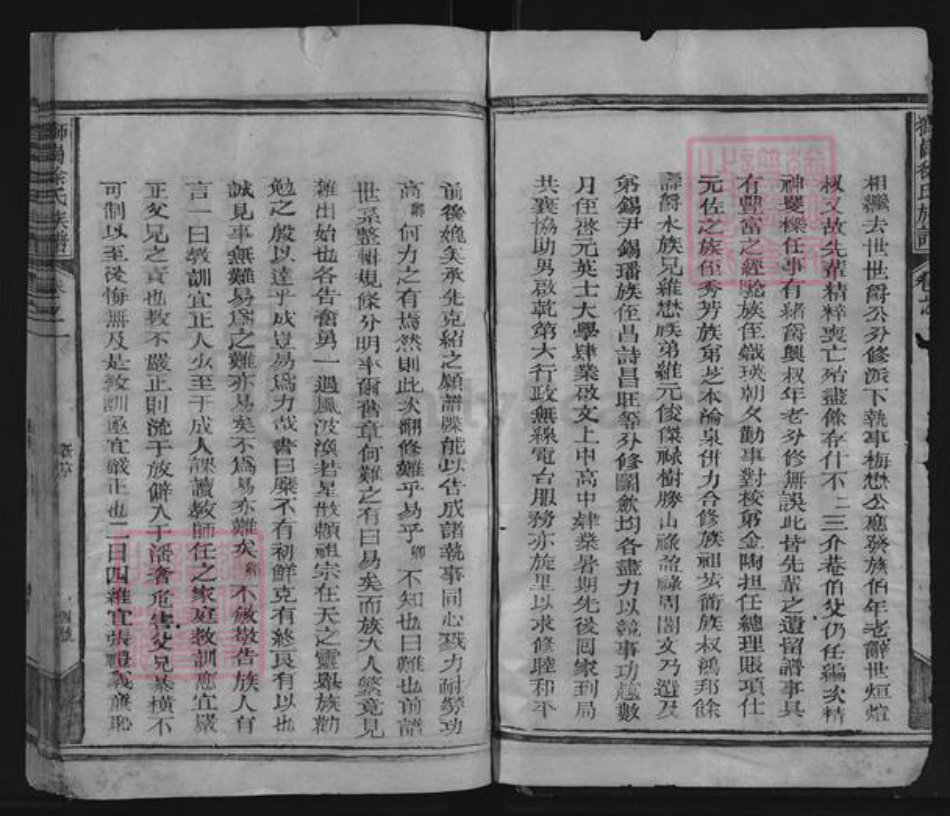 相繼去世世爵公分修派下執事梅懋公應發族伯年老辭世烜煊
叔又故先輩精粹喪亡殆盡餘存什不一二三介菴伯父仍任編次精
神矍櫟任事有緒爵興叔年老分修無誤此皆先輩之遺留譜事具
有豐富之經驗族侄熾瑛朝夕勤事對校弟金陶担任總理賬項仕
元佐之族侄秀芳族弟芝本論泉併力合修族祖 衛族叔鴻邦餘
壽爵水族兄維懋族弟維元俊傑祿樹勝山祿 祿周閣文乃選及
弟錫尹錫璠族侄昌詩昌旺等分修關歛均各盡力以競事功趨數
月侄啓元英士大學肄業啟文上中高中肄業暑期先後囘家到局
共襄協助男啟乾第六行政無綫電台服務亦旋里以求修睦和平
前後媲美承先克紹之願譜牒能以告成諸執事同心戮力耐勞功
高卿何力之有焉然則此次翻修難乎易乎卿不知也曰難也前譜
世系整輯規條分明率爾舊章何難之有曰易矣而族大人繁竟見
雜出始也各告奮勇一遇風波渙若星散賴祖宗在天之靈與族勸
勉之殷以達乎成豈易爲力哉書曰靡不有初鮮克有終良有以也
誠見事無難易爲之難亦易矣不爲易亦難矣卿不敏敬告族人有
言一曰教訓宜正人少至于成人課讀教師任之家庭教訓應宜嚴
正父兄之責也教不嚴正則流于放僻入于潘奢危害父兄暴橫不
可制以至後悔無及是教訓亟宜嚴正也二曰四維宜張禮義廉恥
獅岡徐氏族譜
獅岡徐氏族譜 卷之一